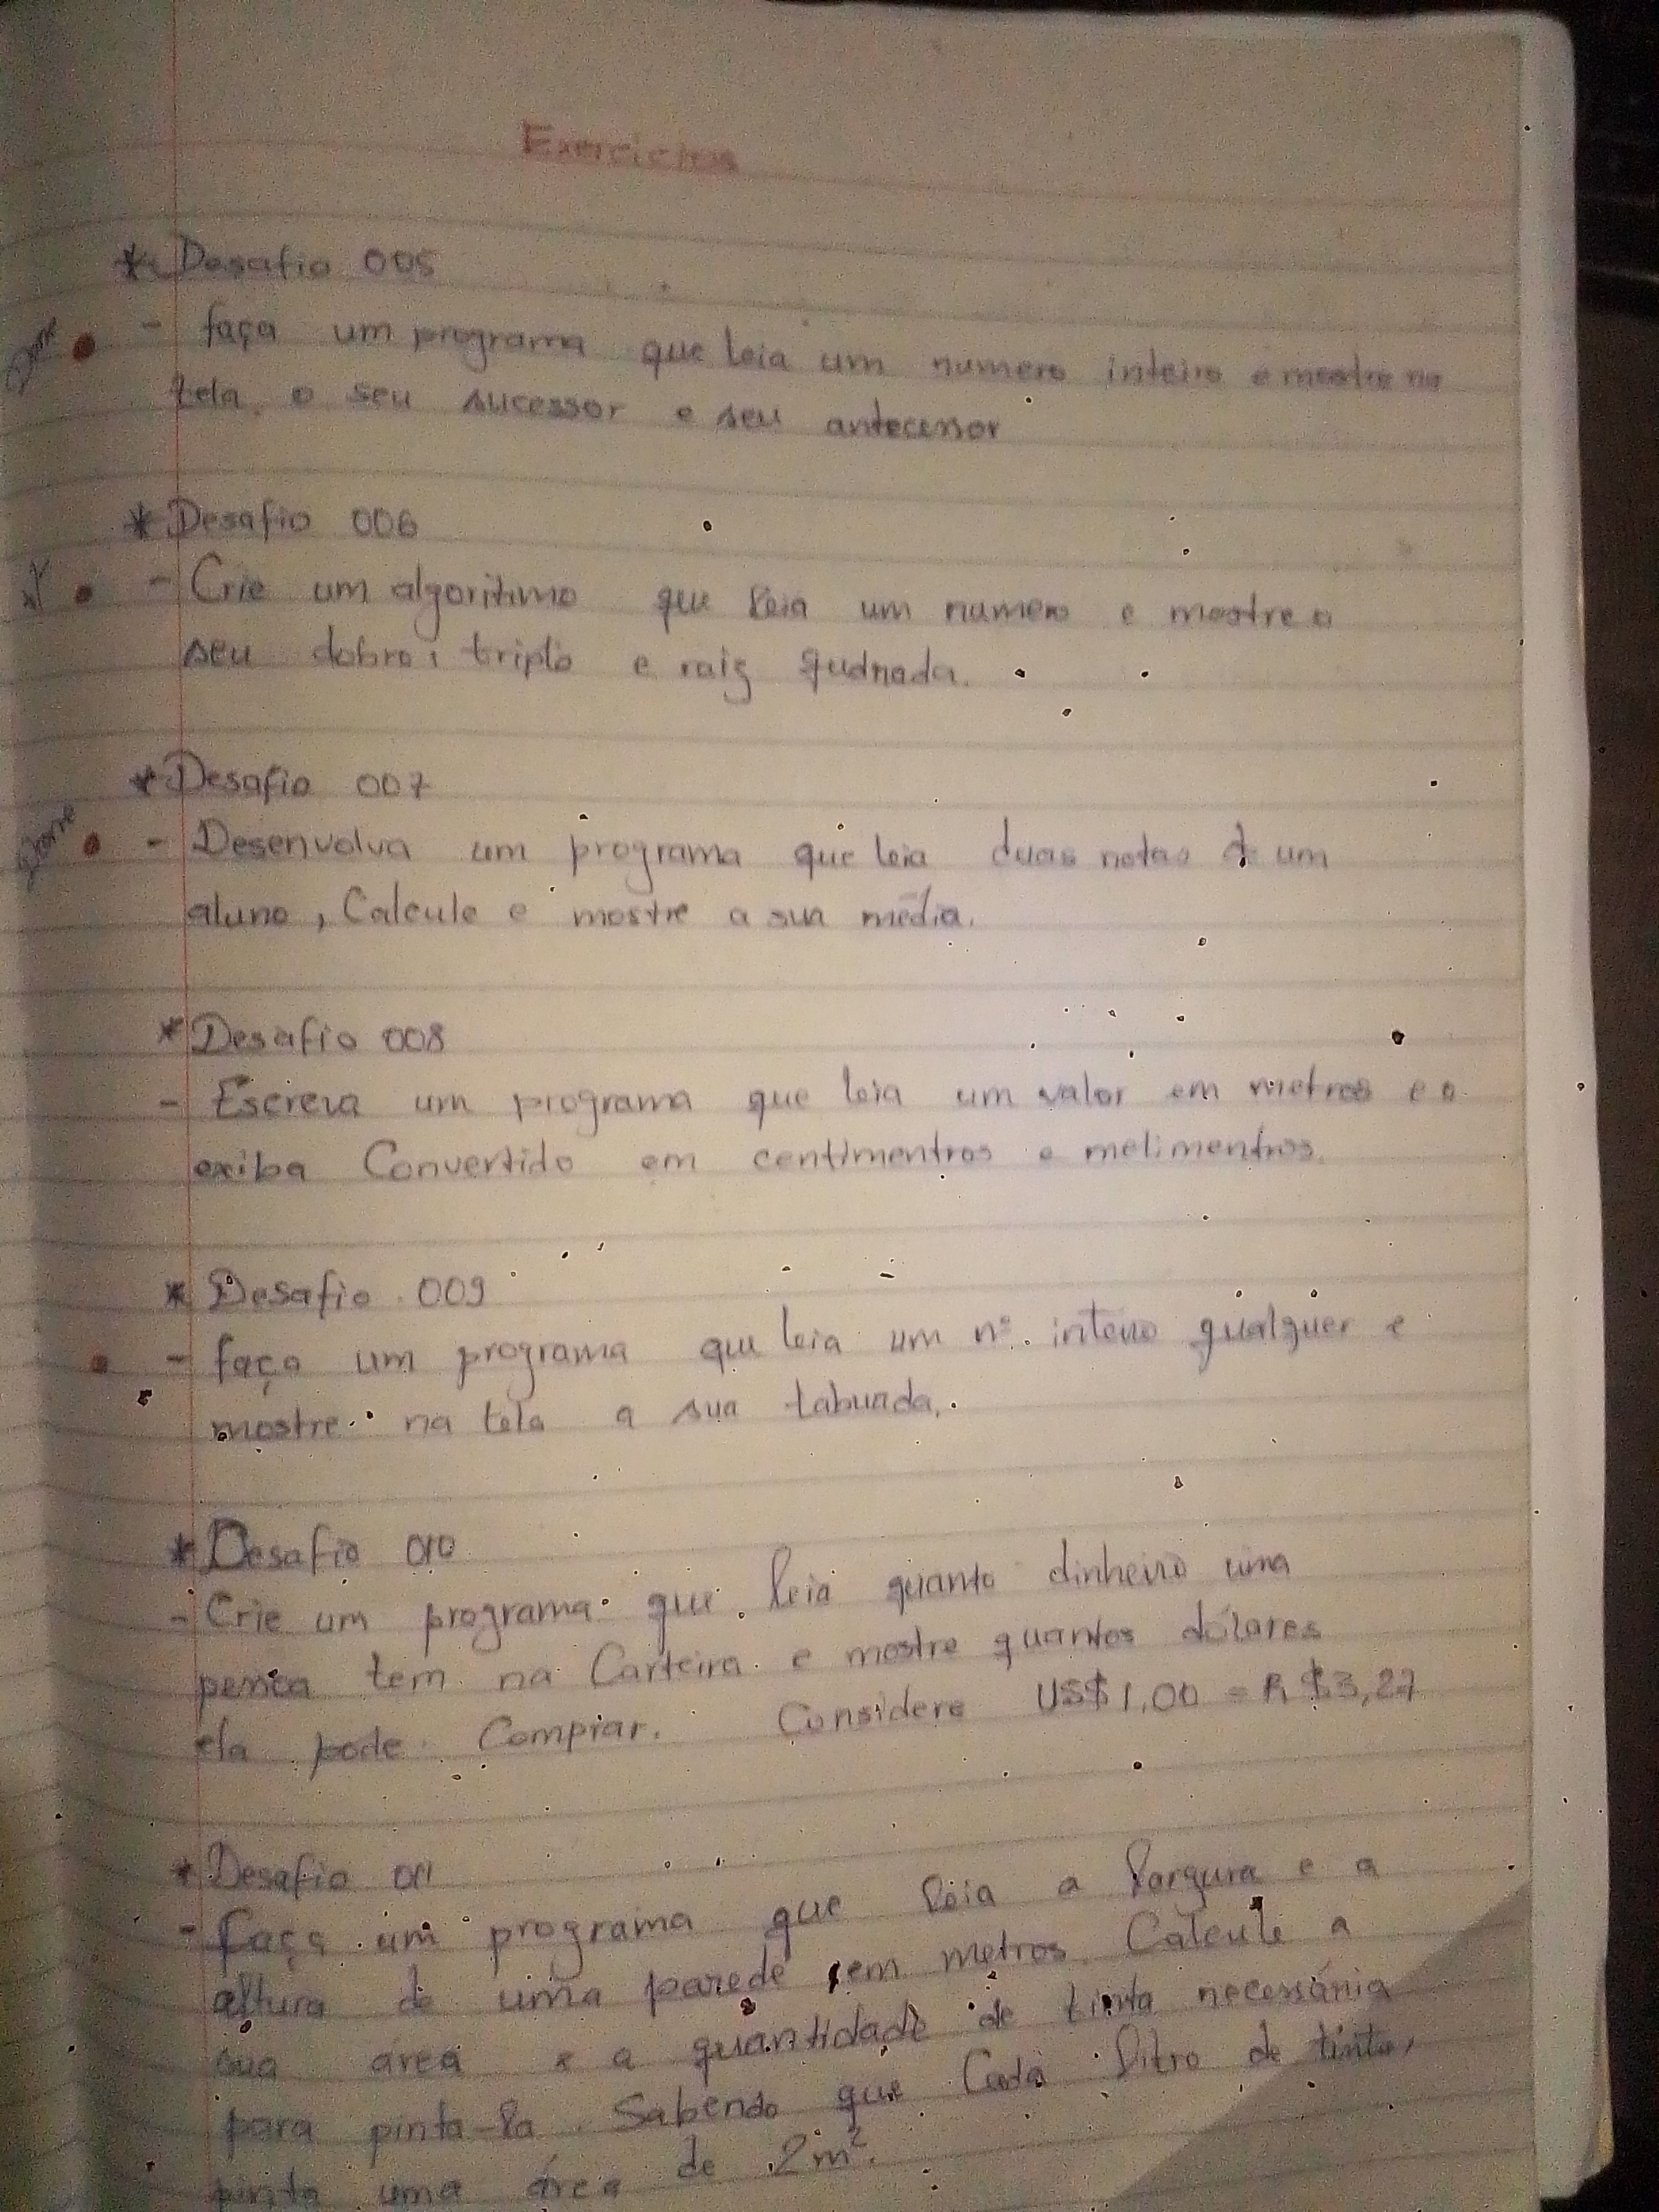 Exercicios
* Desafio 005
Done - faça um programa que leia um numero inteiro e mostre na
tela, o seu sucessor e seu antecessor
* Desafio 006
- Crie um algoritimo que leia um numero e mostre o
seu dobro, triplo e raiz qudrada.
* Desafio 007
Done - Desenvolva um programa que leia duas notas de um
aluno, Calcule e mostre a sua média.
* Desafio 008
- Escreva um programa que leia um valor em metros e o
exiba Convertido em centimentros e melimentros.
* Desafio 009
- faça um programa que leia um nº. inteiro qualquer e
mostre na tela a sua tabuada.
* Desafio 010
- Crie um programa que leia quanto dinheiro uma
pessoa tem na Carteira e mostre quantos dólares
ela pode Comprar. Considere US$ 1,00 = R$3,27
* Desafio 011
- faça um programa que leia a largura e a
altura de uma parede em metros. Calcule a
sua área e a quantidade de tinta necessária
para pinta-la. Sabendo que Cada litro de tinta,
pinta uma área de 2m².